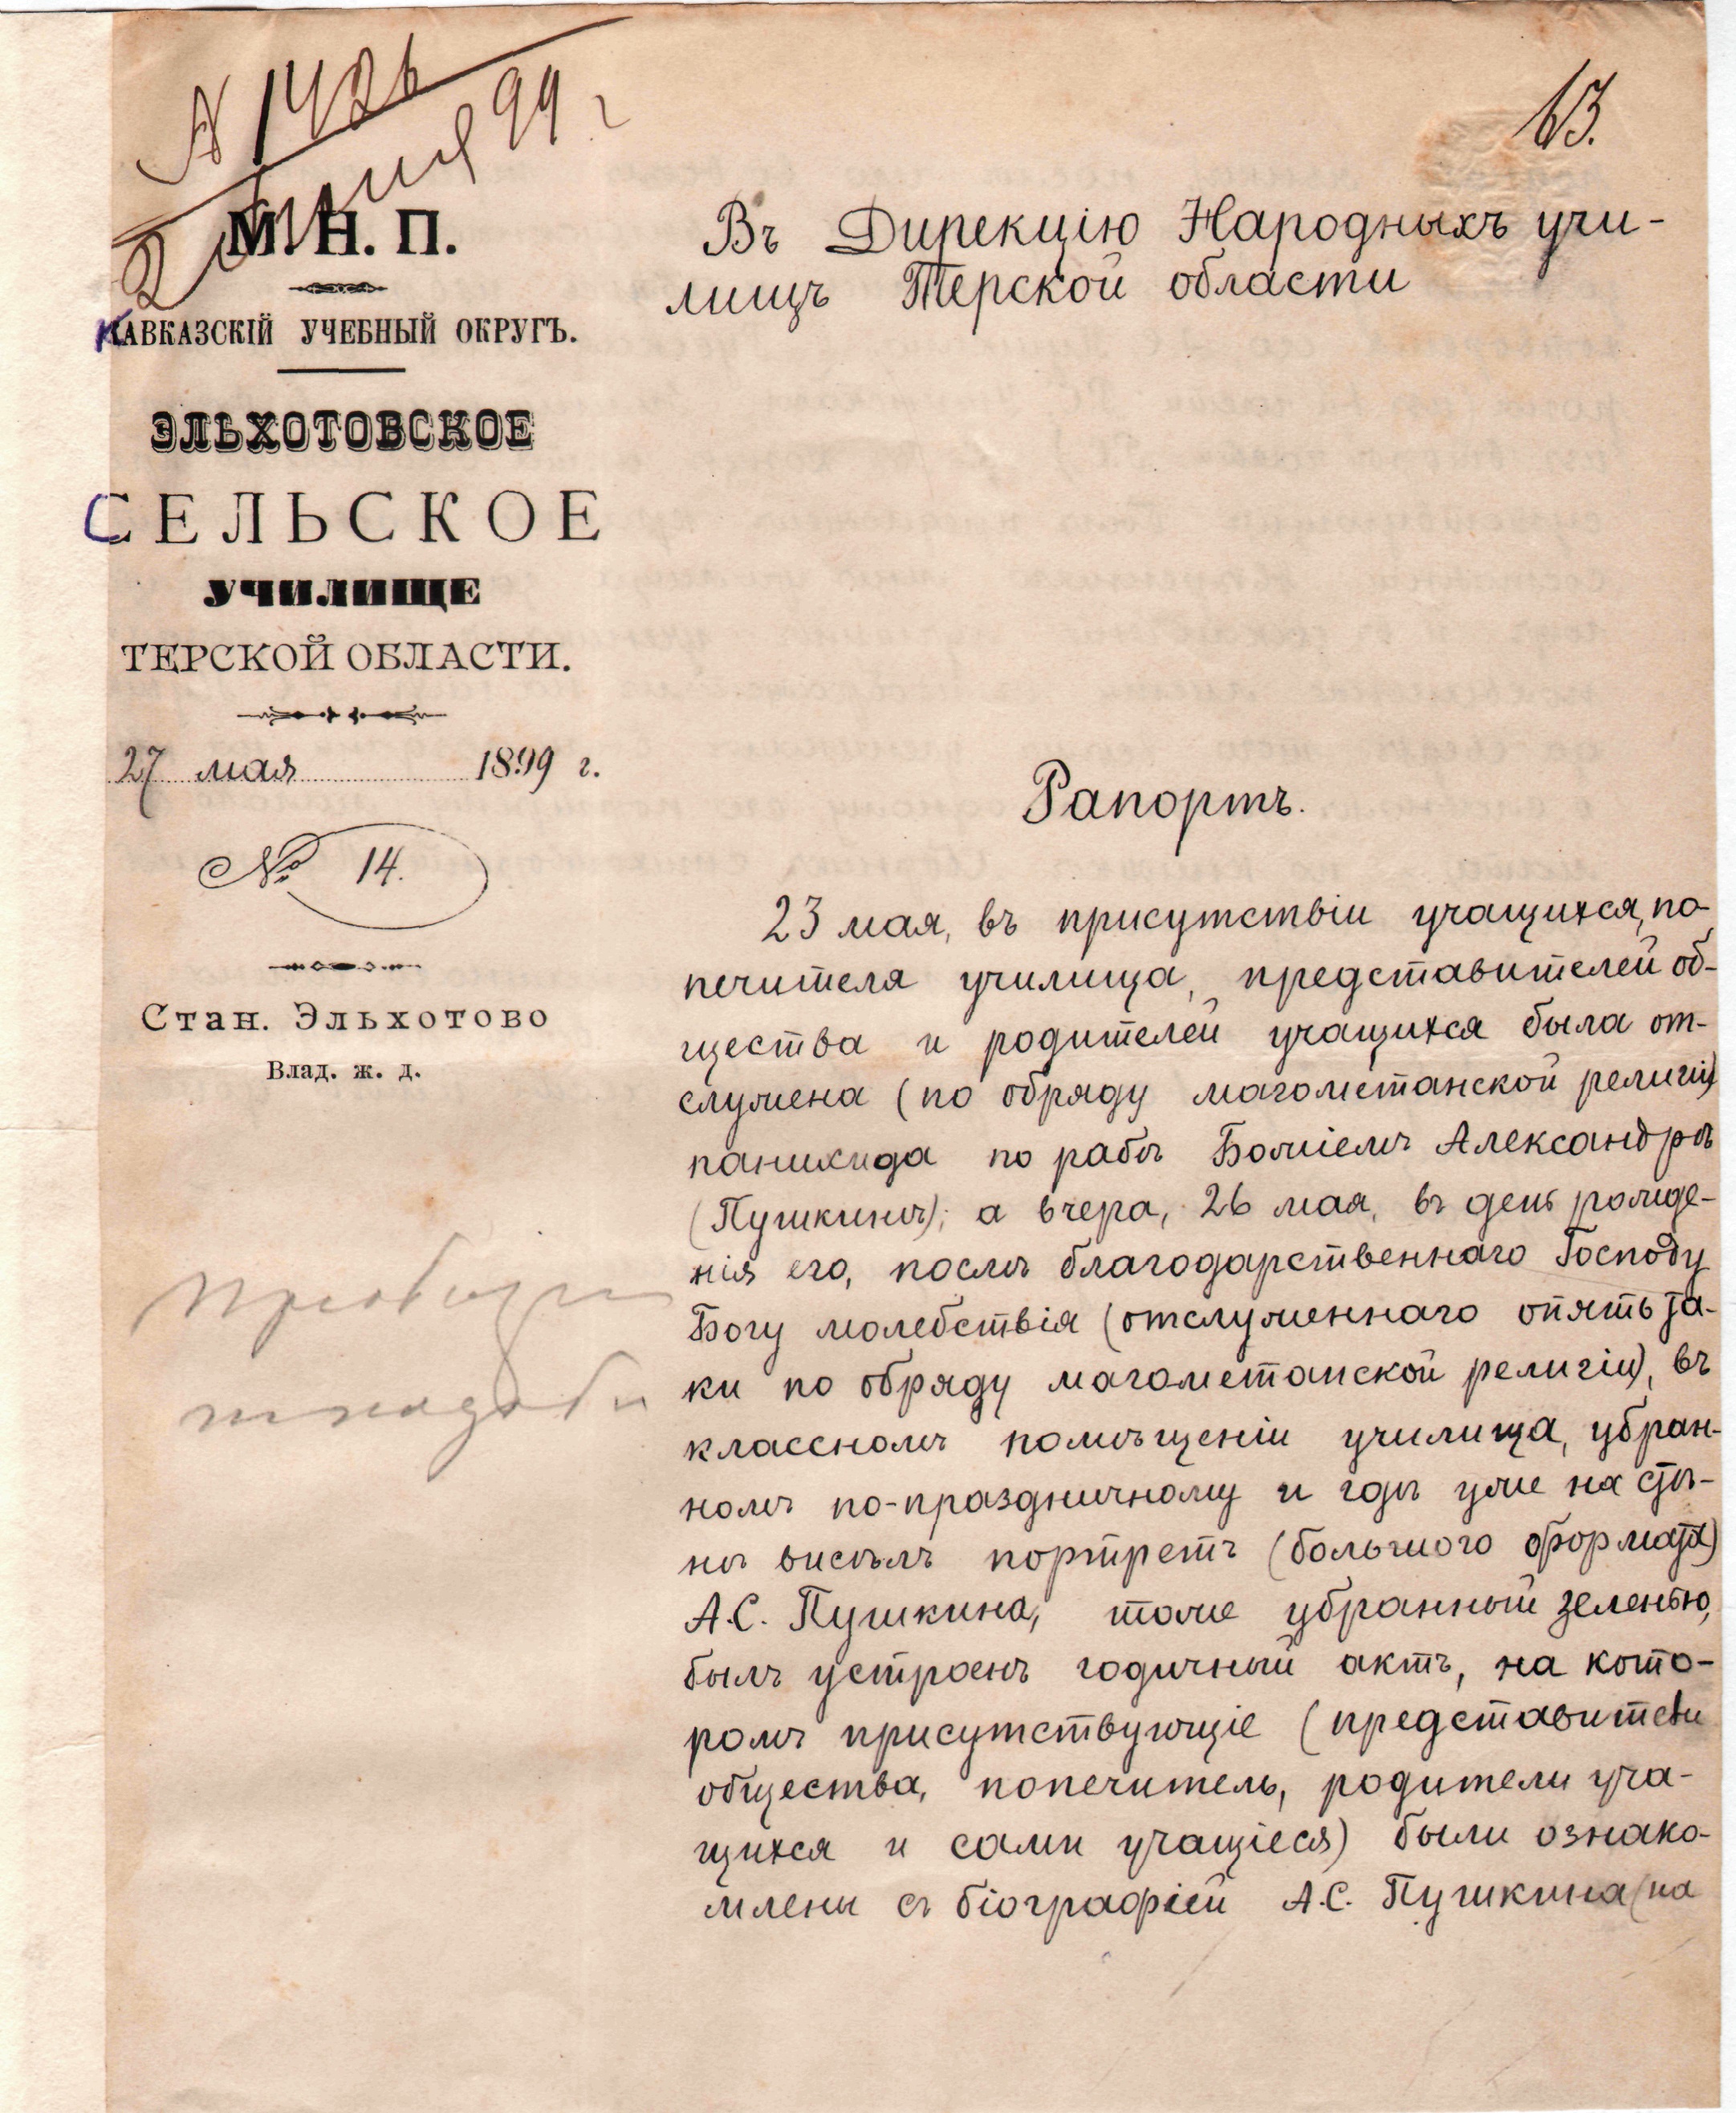 № 1426
2 июня 99 г
63.
М. Н. П.
КАВКАЗСКІЙ УЧЕБНЫЙ ОКРУГЪ.
ЭЛЬХОТОВСКОЕ
СЕЛЬСКОЕ
УЧИЛИЩЕ
ТЕРСКОЙ ОБЛАСТИ.
27 мая 1899 г.
№ 14.
Стан. Эльхотово
Влад. ж. д.
Въ Дирекцію Народныхъ учи-
лищъ Терской области
Рапортъ.
23 мая, въ присутствіи учащихся, по-
печителя училища, представителей об-
щества и родителей учащихся была от-
служена (по обряду магометанской религіи)
панихида по рабѣ Божіемъ Александрѣ
(Пушкинѣ); а вчера, 26 мая, въ день рожде-
нія его, послѣ благодарственнаго Господу
Богу молебствія (отслуженнаго опять та-
ки по обряду магометанской религіи), въ
классномъ помѣщеніи училища, убран-
номъ по-праздничному и гдѣ уже на стѣ-
нѣ висѣлъ портретъ (большого формата)
А.С. Пушкина, тоже убранный зеленью,
былъ устроенъ годичный актъ, на кото-
ромъ присутствующіе (представители
общества, попечитель, родители уча-
щихся и сами учащіеся) были ознако-
млены съ біографіей А.С. Пушкина (на